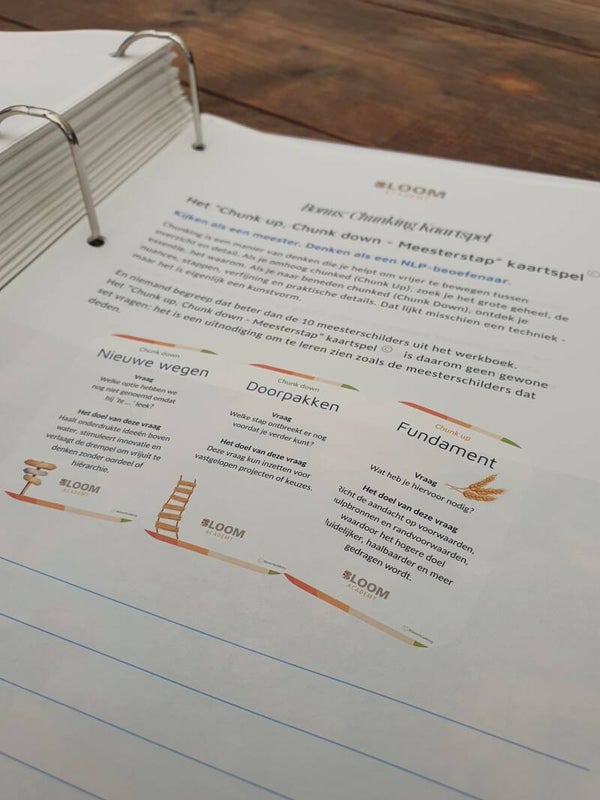 BLOOM
ACADEMY
Bonus: Chunking Kaartspel
Het "Chunk up, Chunk down - Meesterstap" kaartspel ©
Kijken als een meester. Denken als een NLP-beoefenaar.
Chunking is een manier van denken die je helpt om vrijer te bewegen tussen
overzicht en detail. Als je omhoog chunked (Chunk Up), zoek je het grote geheel, de
essentie, het waarom. Als je naar beneden chunked (Chunk Down), ontdek je
nuances, stappen, verfijning en praktische details. Dat lijkt misschien een techniek -
maar het is eigenlijk een kunstvorm.
En niemand begreep dat beter dan de 10 meesterschilders uit het werkboek.
Het "Chunk up, Chunk down - Meesterstap" kaartspel © is daarom geen gewone
set vragen: het is een uitnodiging om te leren zien zoals de meesterschilders dat
deden.
Chunk down
Nieuwe wegen
Vraag
Welke optie hebben we
nog niet genoemd omdat
hij 'te ...' leek?
Het doel van deze vraag
Haalt onderdrukte ideeën boven
water, stimuleert innovatie en
verlaagt de drempel om vrijuit te
denken zonder oordeel of
hiërarchie.
BLOOM
ACADEMY
Chunk down
Doorpakken
Vraag
Welke stap ontbreekt er nog
voordat je verder kunt?
Het doel van deze vraag
Deze vraag kun inzetten voor
vastgelopen projecten of keuzes.
BLOOM
ACADEMY
Chunk up
Fundament
Vraag
Wat heb je hiervoor nodig?
Het doel van deze vraag
Richt de aandacht op voorwaarden,
hulpbronnen en randvoorwaarden,
waardoor het hogere doel
duidelijker, haalbaarder en meer
gedragen wordt.
BLOOM
ACADEMY